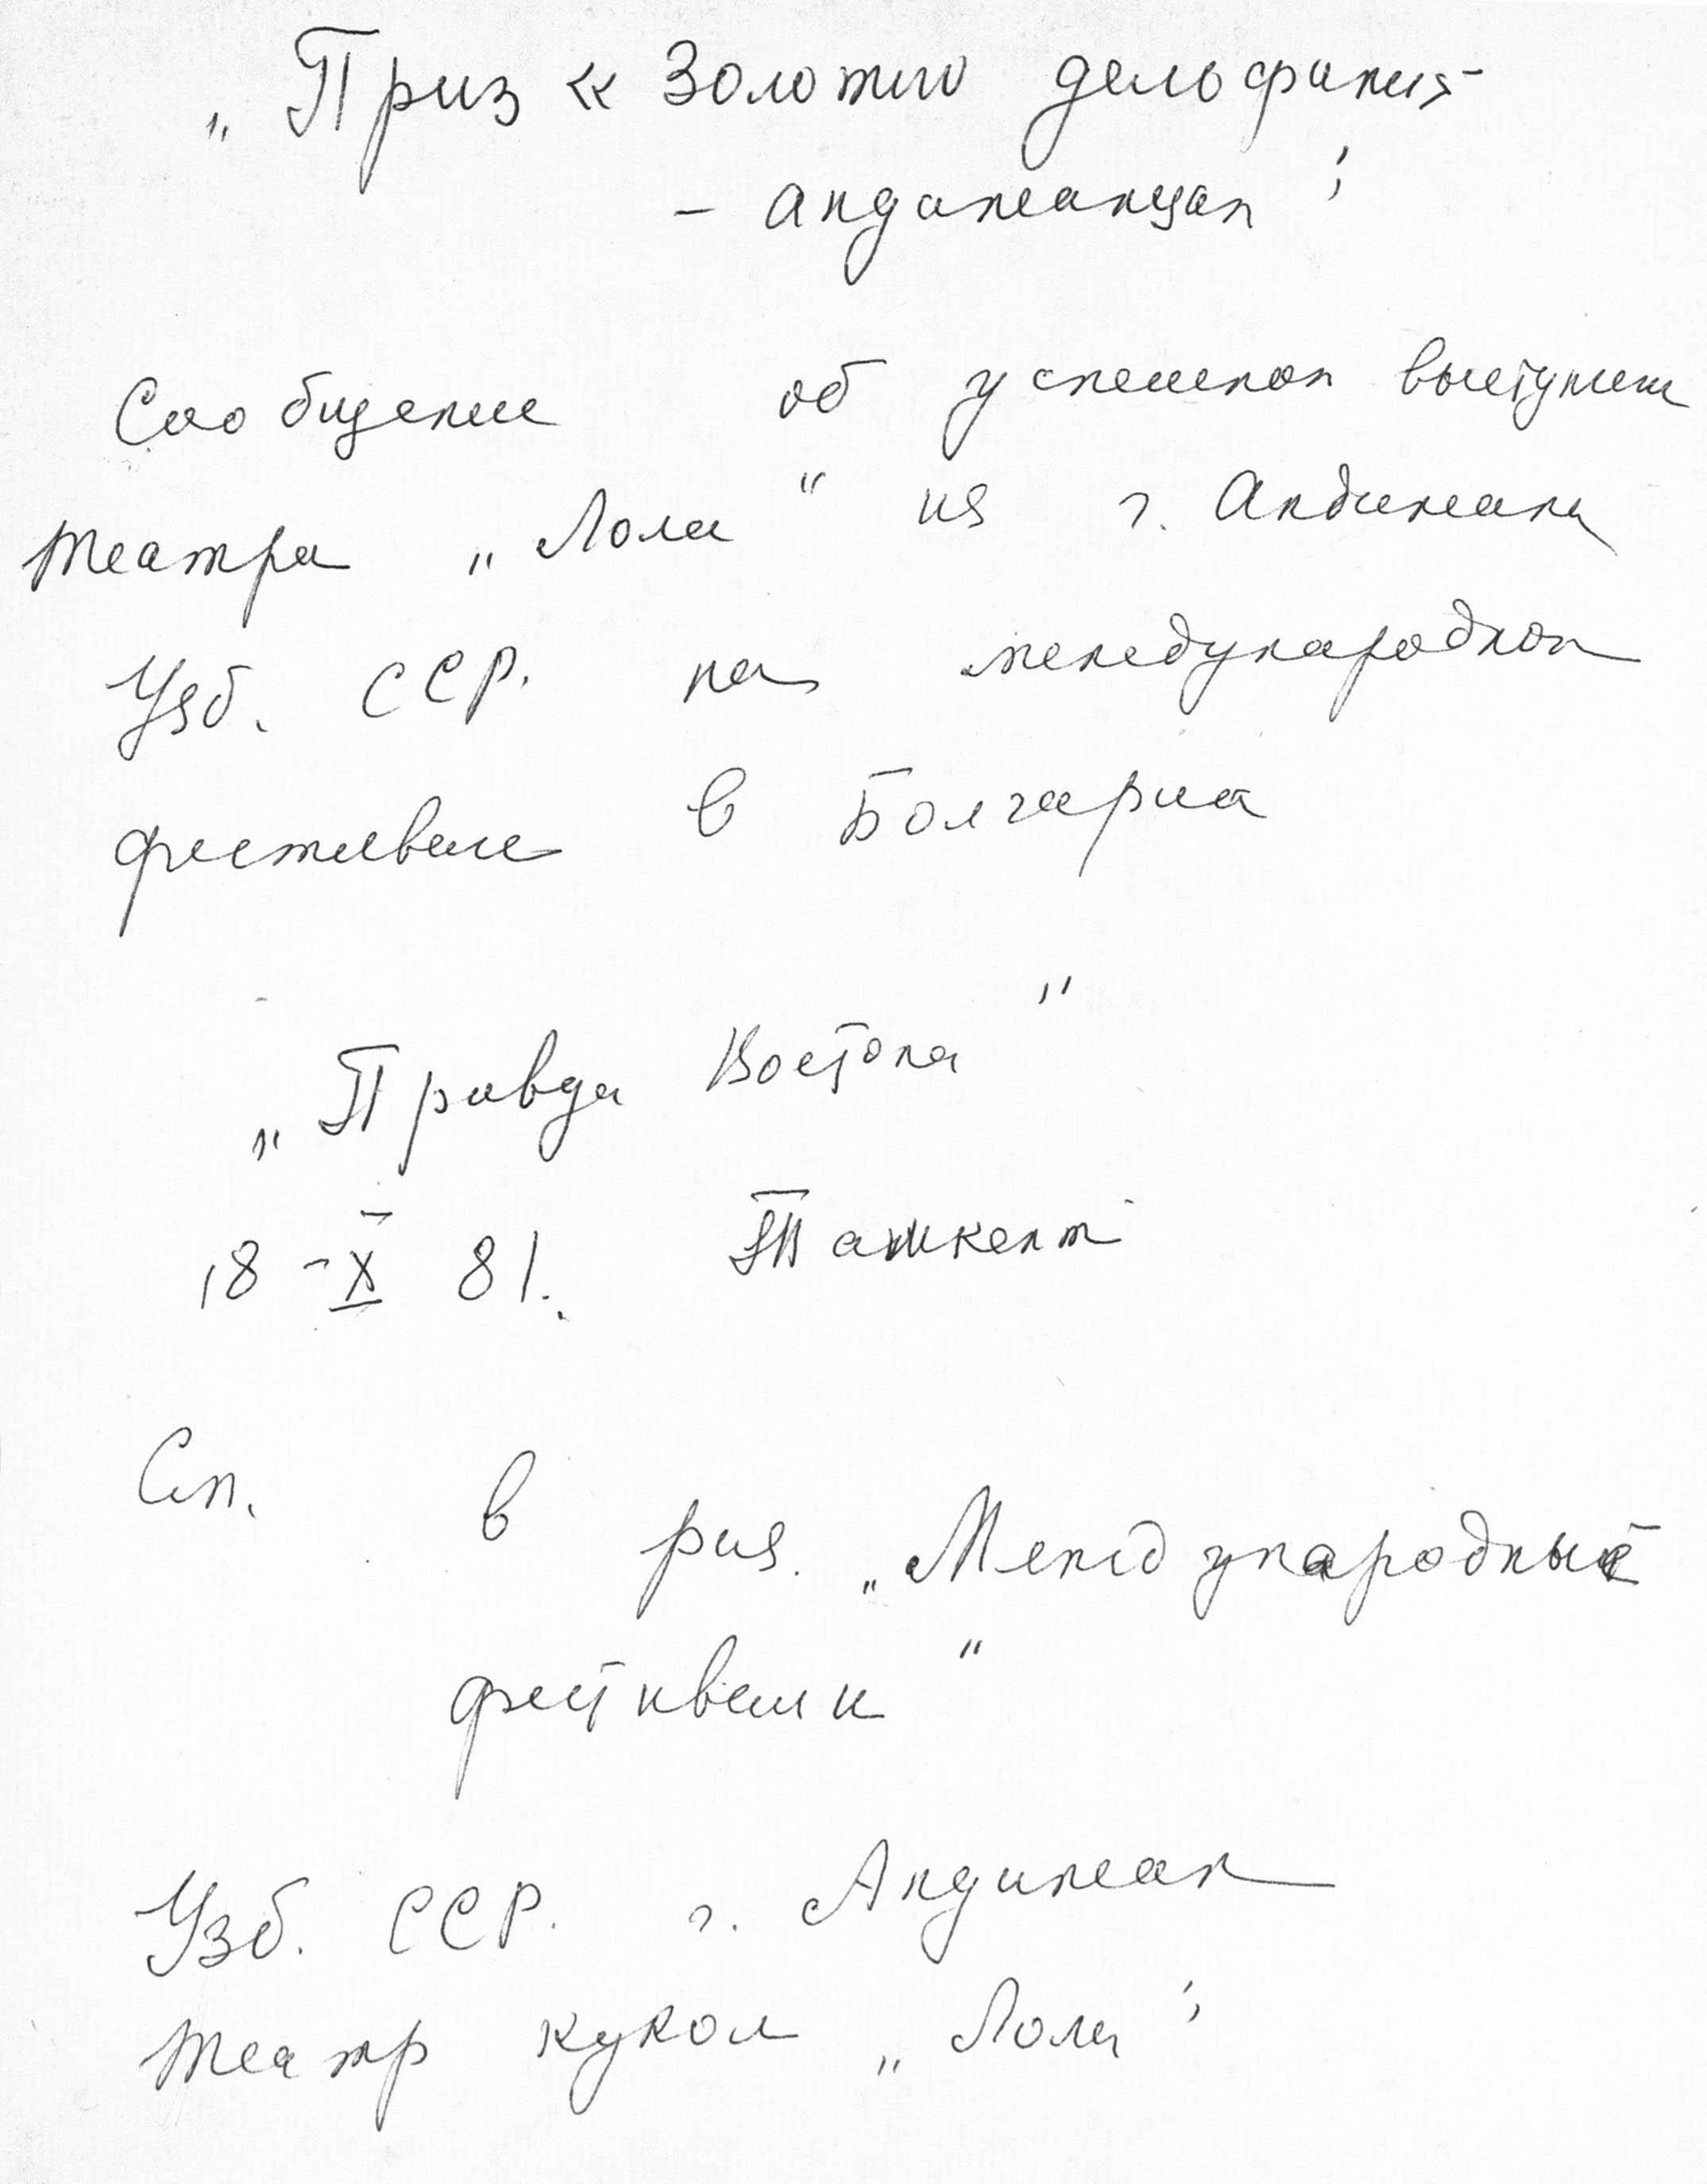 „Приз « Золотого дельфина»
– андижанцам"
Сообщение об успешном выступлении
театра „Лола" из г. Андижана
Узб. ССР. на международном
фестивале в Болгарии
„Правда Востока"
18 - X 81. Ташкент
См. в раз. „Международные
фестивали"
Узб. ССР. г. Андижан
Театр кукол „Лола"